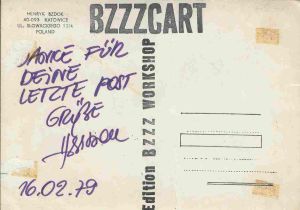 HENRYK BZDOK
40-093 KATOWICE
UL. SŁOWACKIEGO
POLAND
BZZZCART
DANKE FÜR
DEINE
LETZTE POST
GRÜßE
16.02.79
Edition BZZZ WORKSHOP